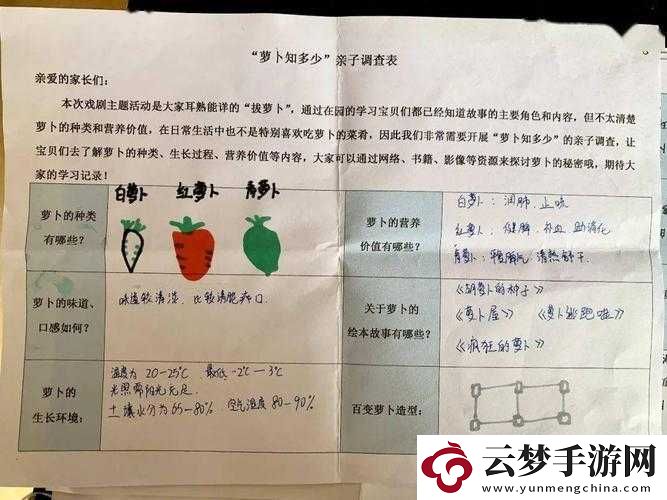 “萝卜知多少”亲子调查表
亲爱的家长们：
本次戏剧主题活动是大家耳熟能详的“拔萝卜”，通过在园的学习宝贝们都已经知道故事的主要角色和内容，但不太清楚
萝卜的种类和营养价值，在日常生活中也不是特别喜欢吃萝卜的菜肴，因此我们非常需要开展“萝卜知多少”的亲子调查，让
宝贝们去了解萝卜的种类、生长过程、营养价值等内容，大家可以通过网络、书籍、影像等资源来探讨萝卜的秘密哦，期待大
家的学习记录！
萝卜的种类
有哪些？
白萝卜 红萝卜 青萝卜
萝卜的营养
价值有哪些？
白萝卜：润肺、止咳
红萝卜：健脾、补血 助消化
青萝卜：健脾 清热舒干
萝卜的味道、
口感如何？
味道较清淡、比较清脆爽口
关于萝卜的
绘本故事有哪些？
《胡萝卜的种子》
《萝卜屋》 《萝卜逃跑啦》
《疯狂的萝卜》
萝卜的
生长环境：
温度为 20-25℃ 最低 -2℃-3℃
光照需阳光充足
土壤水分为65-80% 空气湿度80-90%
百变萝卜造型：
云梦手游网
www.yunmengchina.com